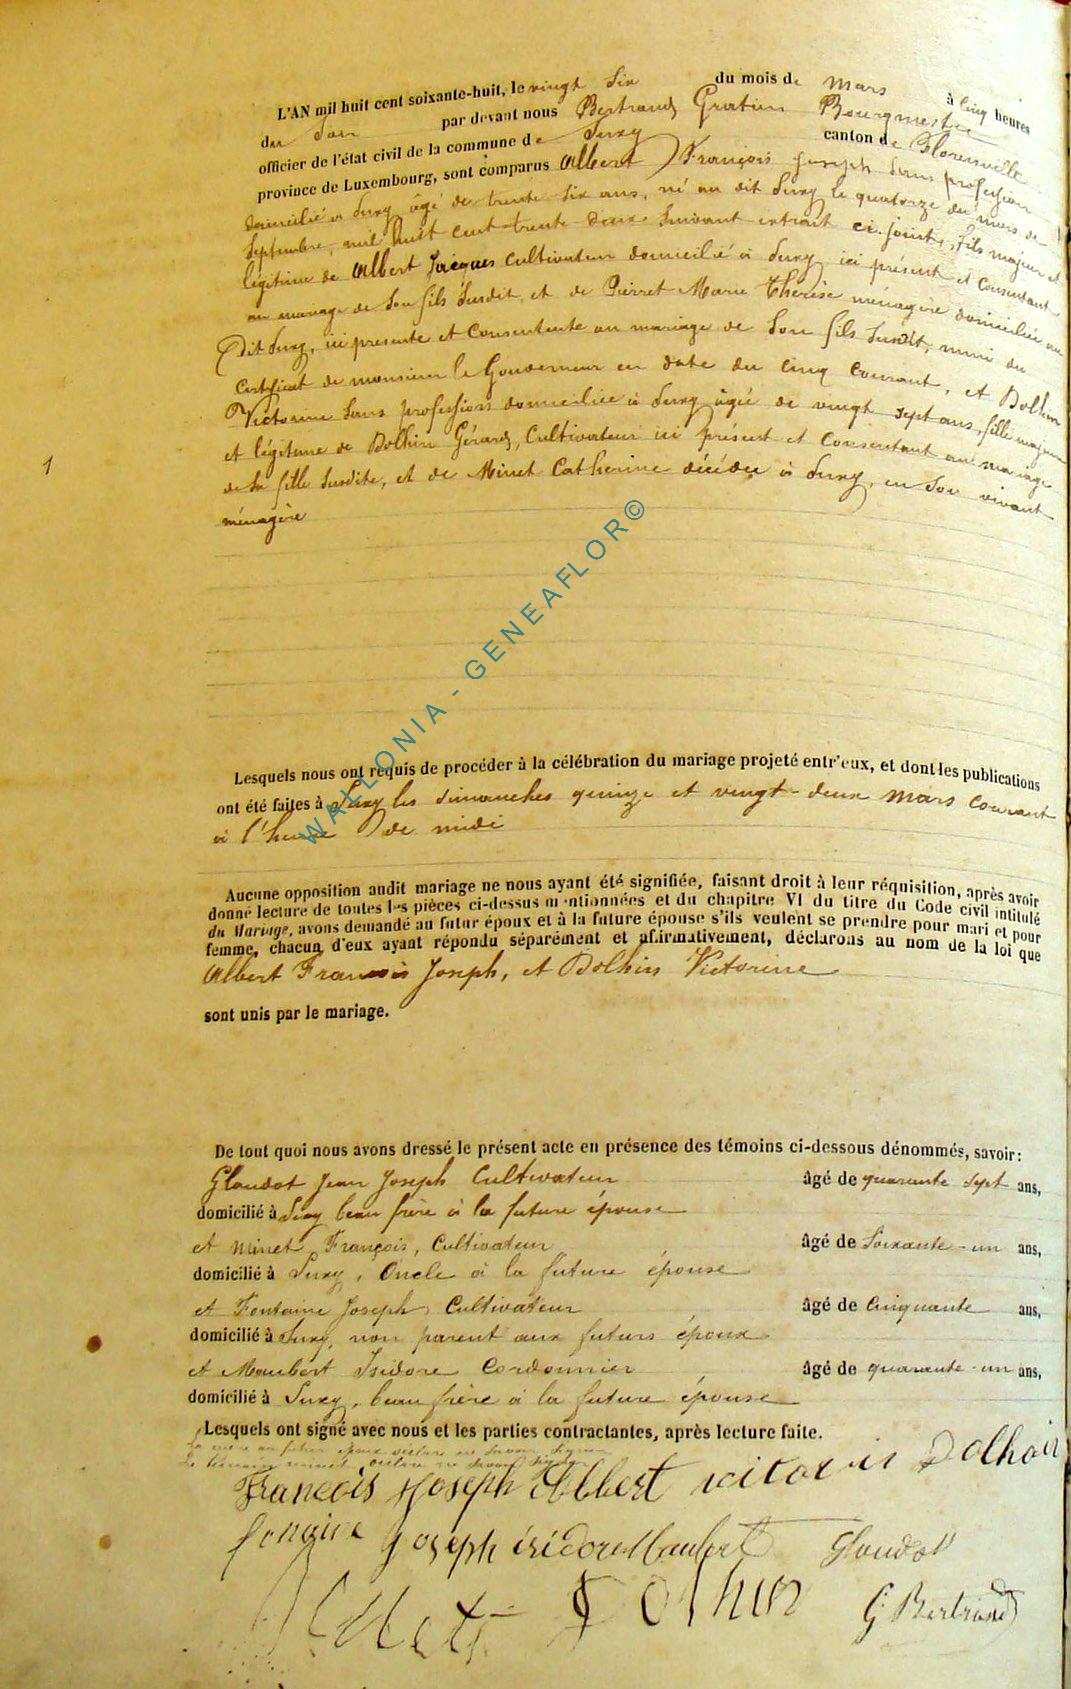 L'AN mil huit cent soixante-huit, le vingt six du mois de mars à cinq heures
du soir par devant nous Bertrand Gratien Bourgmestre
officier de l'état civil de la commune de Suxy canton de Florenville
province de Luxembourg, sont comparus Albert François Joseph sans profession
domicilié à Suxy âgé de trente six ans, né au dit Suxy le quatorze du mois de
Septembre, mil huit cent trente deux suivant extrait ci-joint, fils majeur et
légitime de Albert Jacques cultivateur domicilié à Suxy ici présent et consentant
au mariage de son fils susdit, et de Pierret Marie Thérèse ménagère domiciliée au
Dit Suxy, ici presente et consentente au mariage de son fils susdit, muni du
certificat de monsieur le Gouverneur en date du cinq courant, et Dolhin
Victorine sans profession domiciliée à Suxy âgée de vingt sept ans, fille majeure
et légitime de Dolhin Gérard, cultivateur ici présent et consentant au mariage
de sa fille susdite, et de Minet Catherine décédée à Suxy, en son vivant
ménagère
1
Lesquels nous ont requis de procéder à la célébration du mariage projeté entr'eux, et dont les publications
ont été faites à Suxy les dimanches quinze et vingt-deux mars courant
à l'heure de midi
Aucune opposition audit mariage ne nous ayant été signifiée, faisant droit à leur réquisition, après avoir
donné lecture de toutes les pièces ci-dessus mentionnées et du chapitre VI du titre du Code civil intitulé
du Mariage, avons demandé au futur époux et à la future épouse s'ils veulent se prendre pour mari et pour
femme, chacun d'eux ayant répondu séparément et affirmativement, déclarons au nom de la loi que
Albert François Joseph, et Dolhin Victorine
sont unis par le mariage.
De tout quoi nous avons dressé le présent acte en présence des témoins ci-dessous dénommés, savoir:
Glaudot Jean Joseph Cultivateur âgé de quarante sept ans,
domicilié à Suxy beau frère à la future épouse
et Minet François, Cultivateur âgé de Soixante-un ans,
domicilié à Suxy, Oncle à la future épouse
et Fontaine Joseph Cultivateur âgé de Cinquante ans,
domicilié à Suxy, non parent aux futurs époux
et Maubert Isidore Cordonnier âgé de quarante-un ans,
domicilié à Suxy, beau frère à la future épouse
Lesquels ont signé avec nous et les parties contractantes, après lecture faite.
La mère au futur époux déclare ne savoir signer
Le témoin minet déclare ne savoir signer
François Joseph Albert victorin Dolhain
fontaine Joseph isidore Maubert Glaudot
Dolhin G Bertrand
WALLONIA - GENEAFLOR©